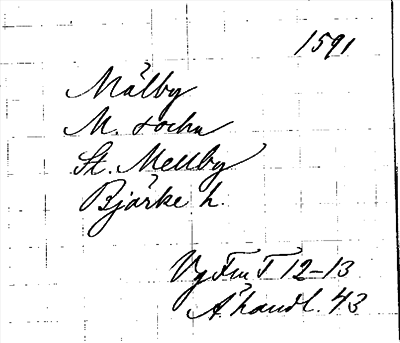 1591
Målby
M. socken
St. Mellby
Bjärke h.
Vg Fm T 12-13
Å. handl. 43